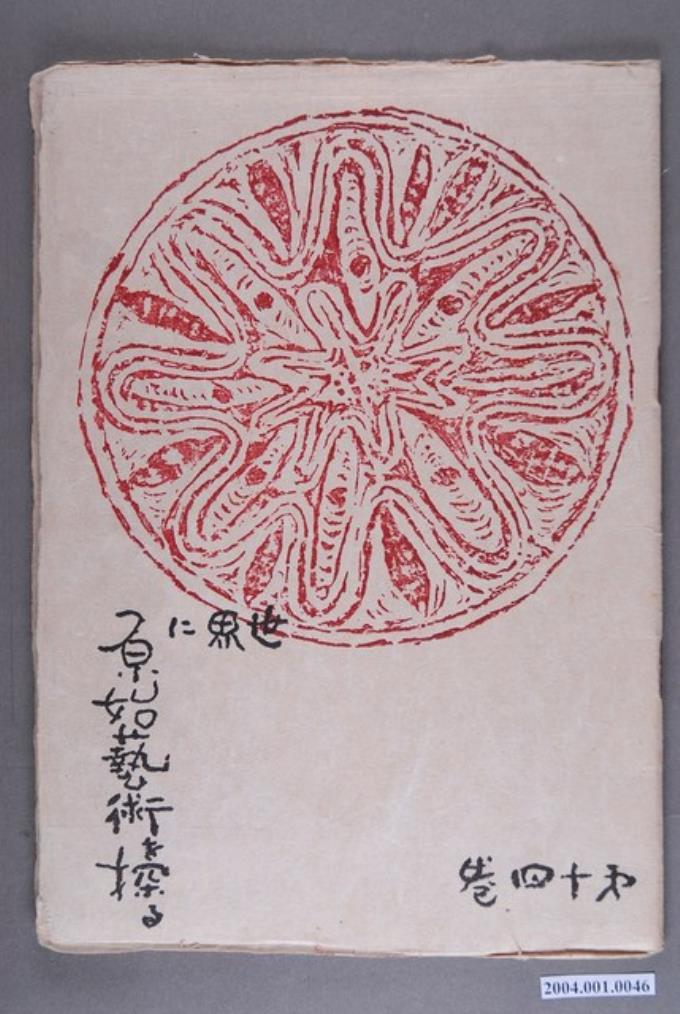 世界に
原始藝術を探る
第十四巻
2004.001.0046